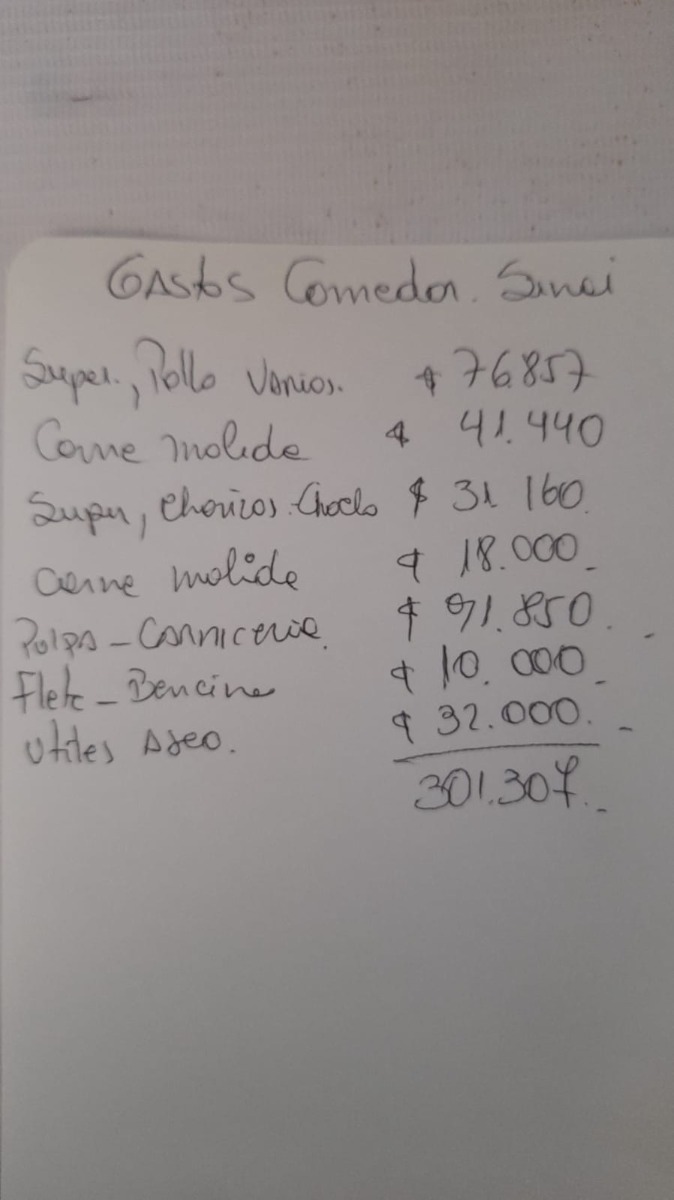 Gastos Comedor. Sinai
Super., Pollo Varios. $ 76.857
Carne molida $ 41.440
Super, Chorizos. Choclo $ 31 160
Carne molida $ 18.000_
Pulpa - Carniceria. $ 91.850. -
Flete - Bencina $ 10.000_
Utiles Aseo. $ 32.000. -
301.307._